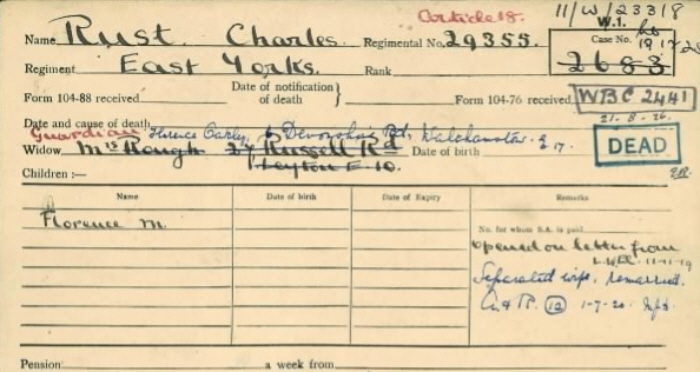 Article 18. 11/W/23318
W.1.
Name Rust. Charles. Regimental No. 29355. Case No.
2683
Regiment East Yorks. Rank
Form 104-88 received Date of notification of death } Form 104-76 received WBC 2441
21-8-26.
Date and cause of death
Guardian Florence Oakley, 6 Devonshire Rd, Walthamstow. E17.
Widow Mrs Rough 27 Russell Rd Date of birth DEAD
Leyton E-10.
Children :—
Name Date of birth Date of Expiry Remarks
Florence M. No. for whom S.A. is paid
opened on letter from
11-11-19
Separated wife, remarried.
(12) 1-7-20.
Pension: a week from